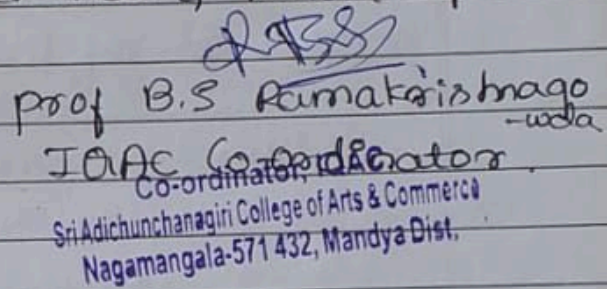 Prof B.S Ramakrishnago
-wda
IQAC Co-ordinator.
Co-ordinator, IQAC
Sri Adichunchanagiri College of Arts & Commerce
Nagamangala-571 432, Mandya Dist.